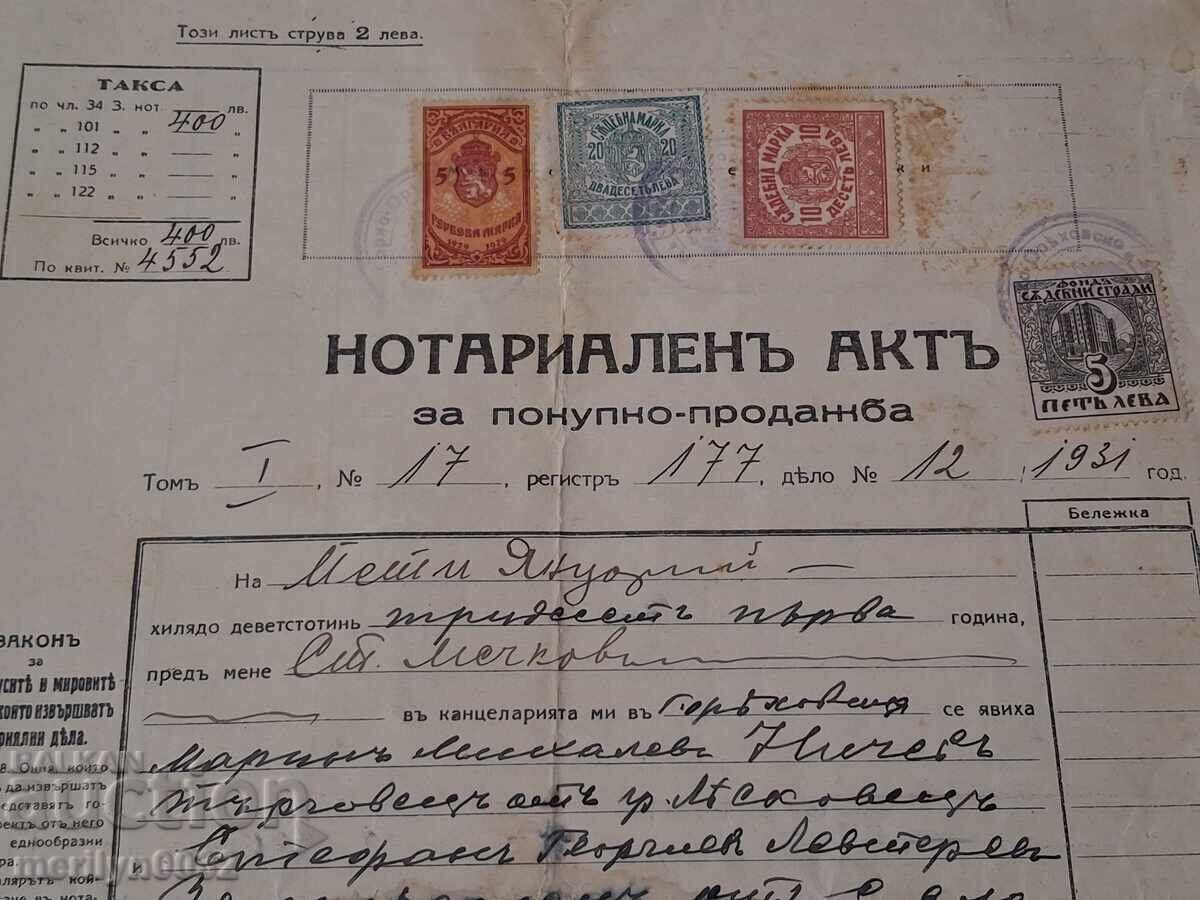 Този листъ струва 2 лева.
ТАКСА
по чл. 34 З. нот. 400 лв.
„ „ 101 „ „ 400 „
„ „ 112 „ „ — „
„ „ 115 „ „ — „
„ „ 122 „ „ — „
Всичко 400 лв.
По квит. № 4552
БЪЛГАРИЯ
5 5
ГЕРБОВА МАРКА
1929 1929
СѪДЕБНА МАРКА
20 20
ДВАДЕСЕТЬ ЛЕВА
СѪДЕБНА МАРКА
10 10
ДЕСЕТЬ ЛЕВА
ки
ФОНДЪ
СѪДЕБНИ СГРАДИ
5
ПЕТЬ ЛЕВА
НОТАРИАЛЕНЪ АКТЪ
за покупко-продажба
Томъ I, № 17, регистръ 177, дѣло № 12, 1931 год.
Бележка
На шести Януарий —
хилядо деветстотинь тридесеть първа година,
предъ мене Ст. Мечковъ
въ канцеларията ми въ Горѣховица се явиха
Маринъ Михалевъ Ничевъ
търговецъ отъ гр. Лѣсковецъ
и Стефанъ Георгиевъ Левтеревъ
отъ село
ЗАКОНЪ
за
мировитѣ
които извършватъ
дѣла.
които
да извършатъ
отъ него
еднообразни
кой-
въ нота-
BALKAN
merilyn0002